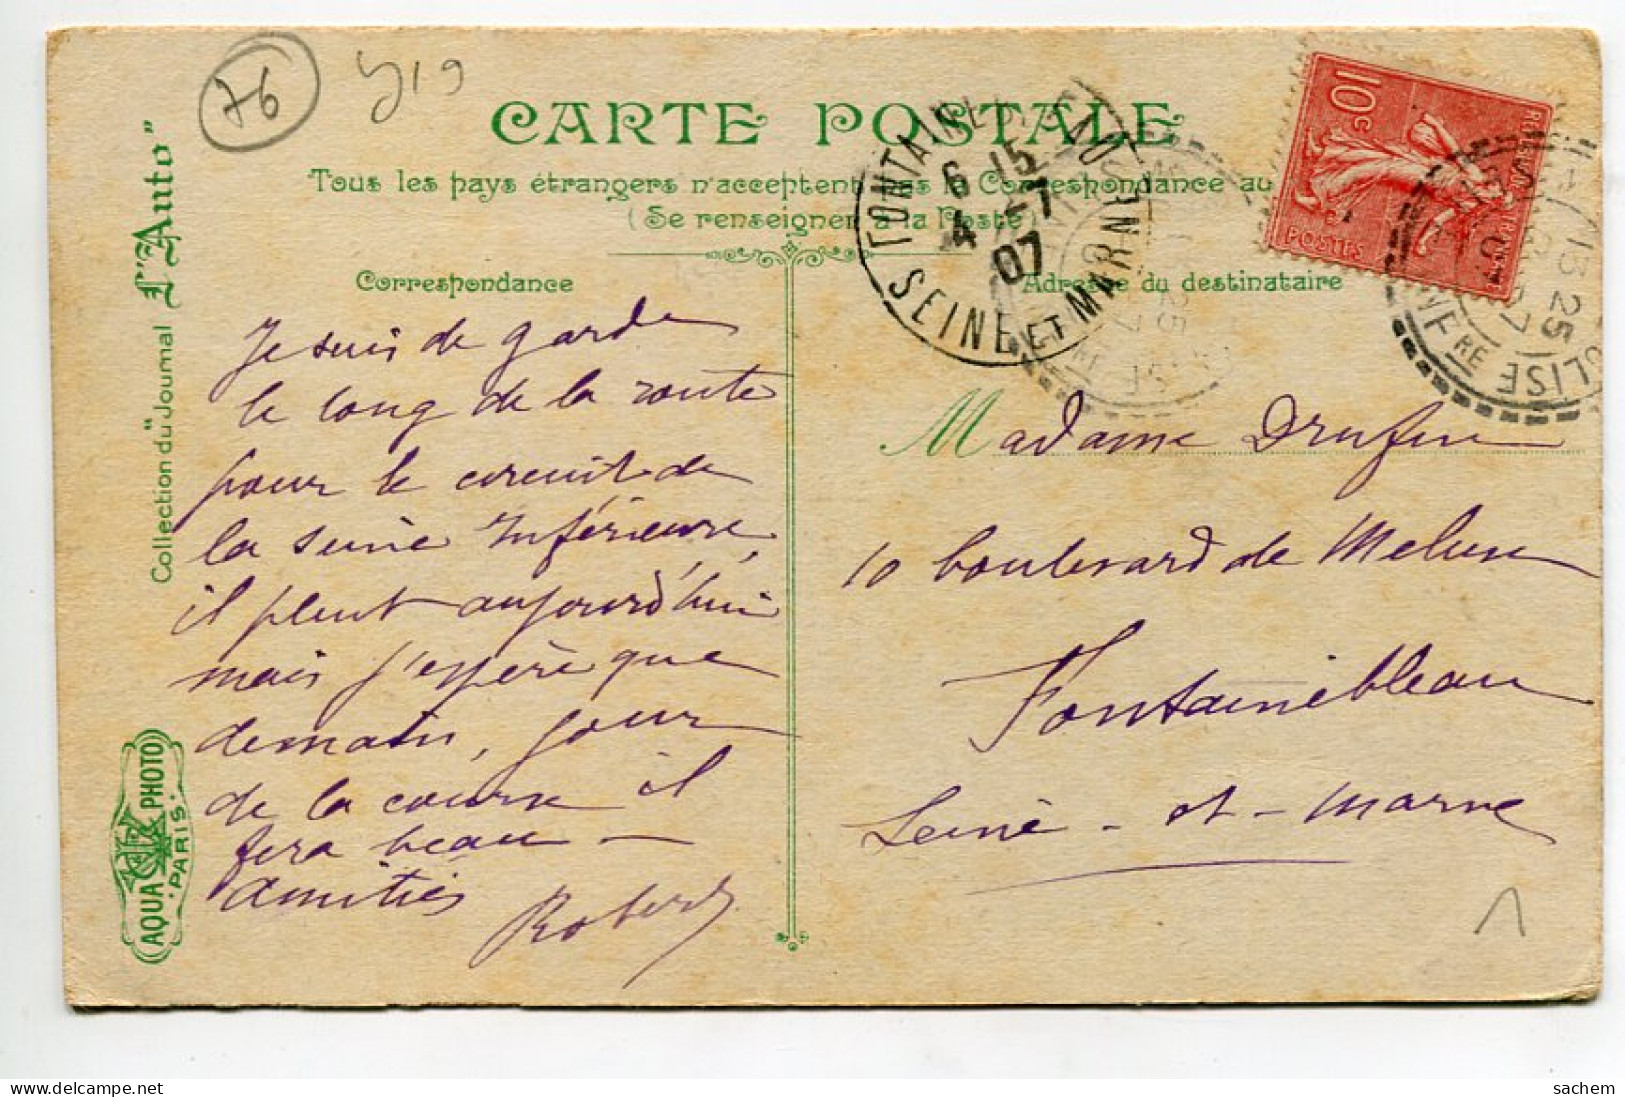 76
J19
CARTE POSTALE
Tous les pays étrangers n'acceptent pas la Correspondance au
(Se renseigner à la Poste
Collection du Journal "L'Auto"
AQUA PHOTO
PARIS
10c
POSTES
FONTAINEBLEAU
6 15
4 -7
07
SEINE ET MARNE
15 25
Correspondance
Je suis de garde
le long de la route
pour le circuit de
la Seine Inférieure,
il pleut aujourd'hui
mais j'espère que
demain, jour
de la course il
fera beau —
amitiés
Robert
Adresse du destinataire
Madame
10 boulevard de Melun
Fontainebleau
Seine-et-Marne
sachem